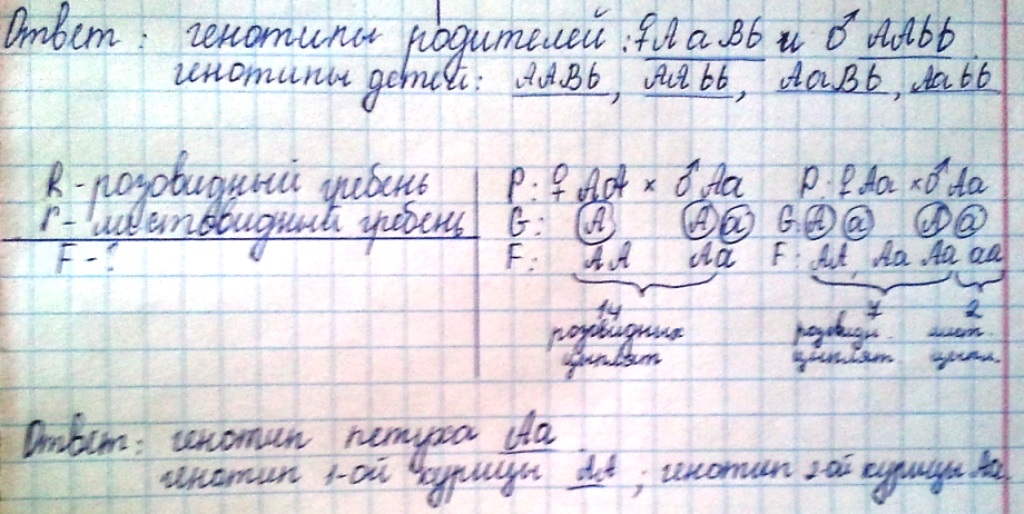 Ответ: генотипы родителей: ♀AaBb и ♂ AAbb
генотипы детей: AABb, AAbb, AaBb, Aabb
R - розовидный гребень
r - листовидный гребень
F - ?
P: ♀ AA × ♂ Aa
G: A A a
F: AA Aa
14
розовидных
цыплят
P: ♀ Aa × ♂ Aa
G: A a A a
F: AA, Aa Aa aa
7 2
розовидн. лист.
цыплят цыпл.
Ответ: генотип петуха Aa
генотип 1-ой курицы AA; генотип 2-ой курицы Aa.